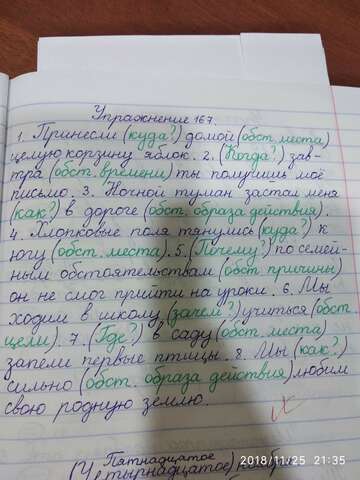 Упражнение 167.
1. Принесли (куда?) домой (обст. места)
целую корзину яблок. 2. (Когда?) зав-
тра (обст. времени) ты получишь моё
письмо. 3. Ночной туман застал меня
(как?) в дороге (обст. образа действия).
4. Хлопковые поля тянулись (куда?) к
югу (обст. места). 5. (Почему?) по семей-
ным обстоятельствам (обст. причины)
он не смог прийти на уроки. 6. Мы
ходим в школу (зачем?) учиться (обст.
цели). 7. (Где?) в саду (обст. места)
запели первые птицы. 8. Мы (как?)
сильно (обст. образа действия) любим
свою родную землю.
Пятнадцатое
(Четырнадцатое) ноября
2018/11/25 21:35